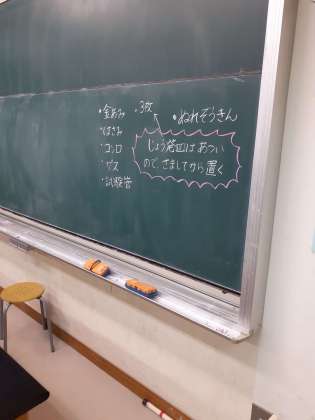 ・金あみ ・3枚
・はさみ
・コンロ
・ガス
・試験管
・ぬれぞうきん
じょう発皿はあつい
ので、さましてから置く